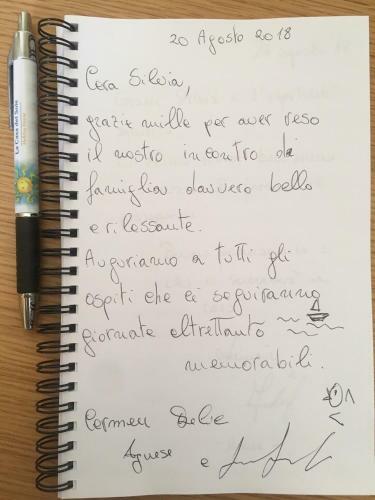 20 Agosto 2018
Cara Silvia,
grazie mille per aver reso
il nostro incontro di
famiglia davvero bello
e rilassante.
Auguriamo a tutti gli
ospiti che ci seguiranno
giornate altrettanto
memorabili.
Carmen
Agnese e
La Casa del Sole